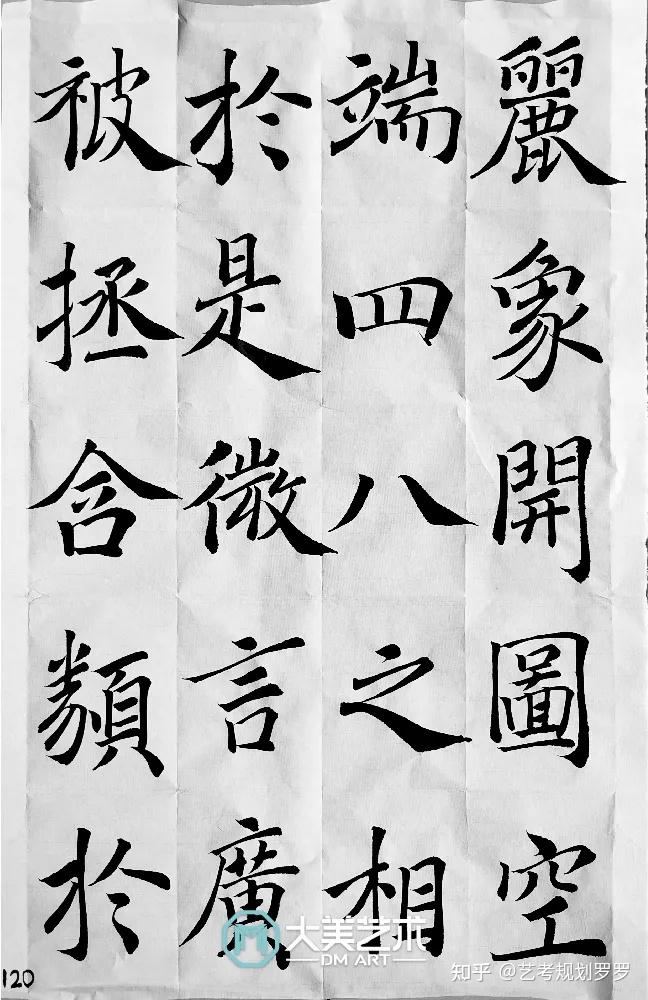 麗象開圖空
端四八之相
於是微言廣
被拯含類於
120
大美艺术
DM ART
知乎 @艺考规划罗罗